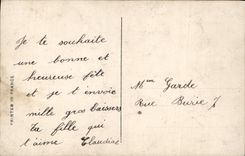 Je te souhaite
une bonne et
heureuse fête
et je t'envoie
mille gros baisers
ta fille qui
t'aime Claudine
Mme Garde
Rue Burie 7
PRINTED IN FRANCE